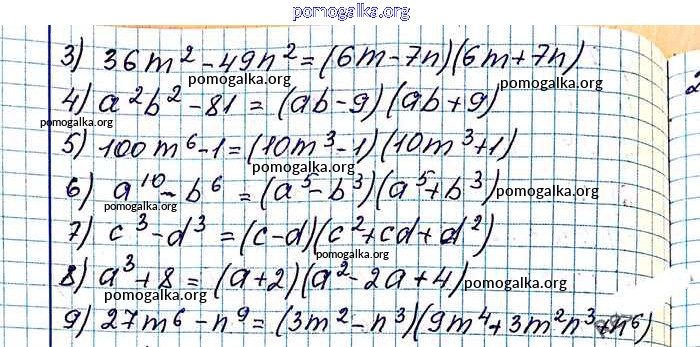 pomogalka.org
3) 36m² - 49n² = (6m - 7n)(6m + 7n)
pomogalka.org
4) a²b² - 81 = (ab - 9)(ab + 9)
pomogalka.org
pomogalka.org
5) 100m⁶ - 1 = (10m³ - 1)(10m³ + 1)
pomogalka.org
6) a¹⁰ - b⁶ = (a⁵ - b³)(a⁵ + b³)
pomogalka.org
pomogalka.org
7) c³ - d³ = (c - d)(c² + cd + d²)
pomogalka.org
8) a³ + 8 = (a + 2)(a² - 2a + 4)
pomogalka.org
pomogalka.org
9) 27m⁶ - n⁹ = (3m² - n³)(9m⁴ + 3m²n³ + n⁶)